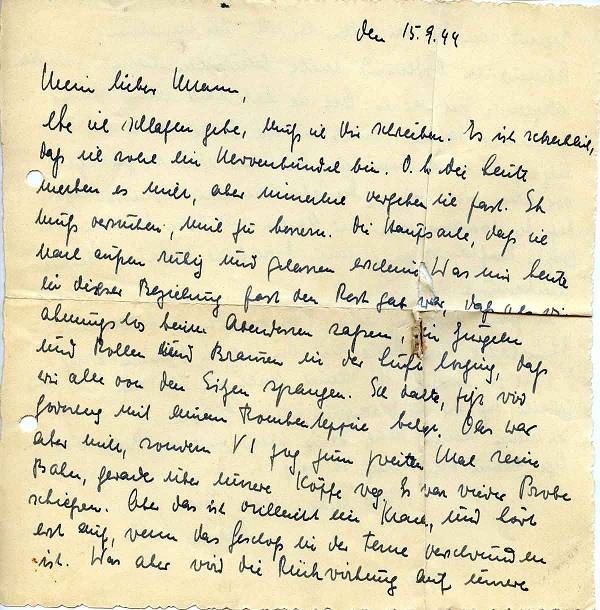 den 15.9.44
Mein lieber Mann,
Ehe ich schlafen gehe, muß ich Dir schreiben. Es ist schrecklich,
daß ich solch ein Nervenbündel bin. D.h. die Leute
merken es nicht, aber innerlich vergehe ich fast. Ich
muß versuchen, mich zu bessern. Die Hauptsache, daß ich
nach außen ruhig und gelassen erscheine. Was mir heute
in dieser Beziehung fast den Rest gab war, daß als wir
ahnungslos beim Abendessen saßen, ein Gurgeln
und Rollen und Brausen in der Luft losging, daß
wir alle von den Sitzen sprangen. Ich dachte, jetzt wird
mit einem Bombenteppich belegt. Das war
aber nicht, sondern V1 zog zum zweiten Mal seine
Bahn, gerade über unsere Köpfe weg. Es war wieder Probe
schießen. Aber das ist vielleicht ein Krach, und hört
erst auf, wenn das Geschoß in der Ferne verschwunden
ist. Was aber wird die Rückwirkung auf unsere